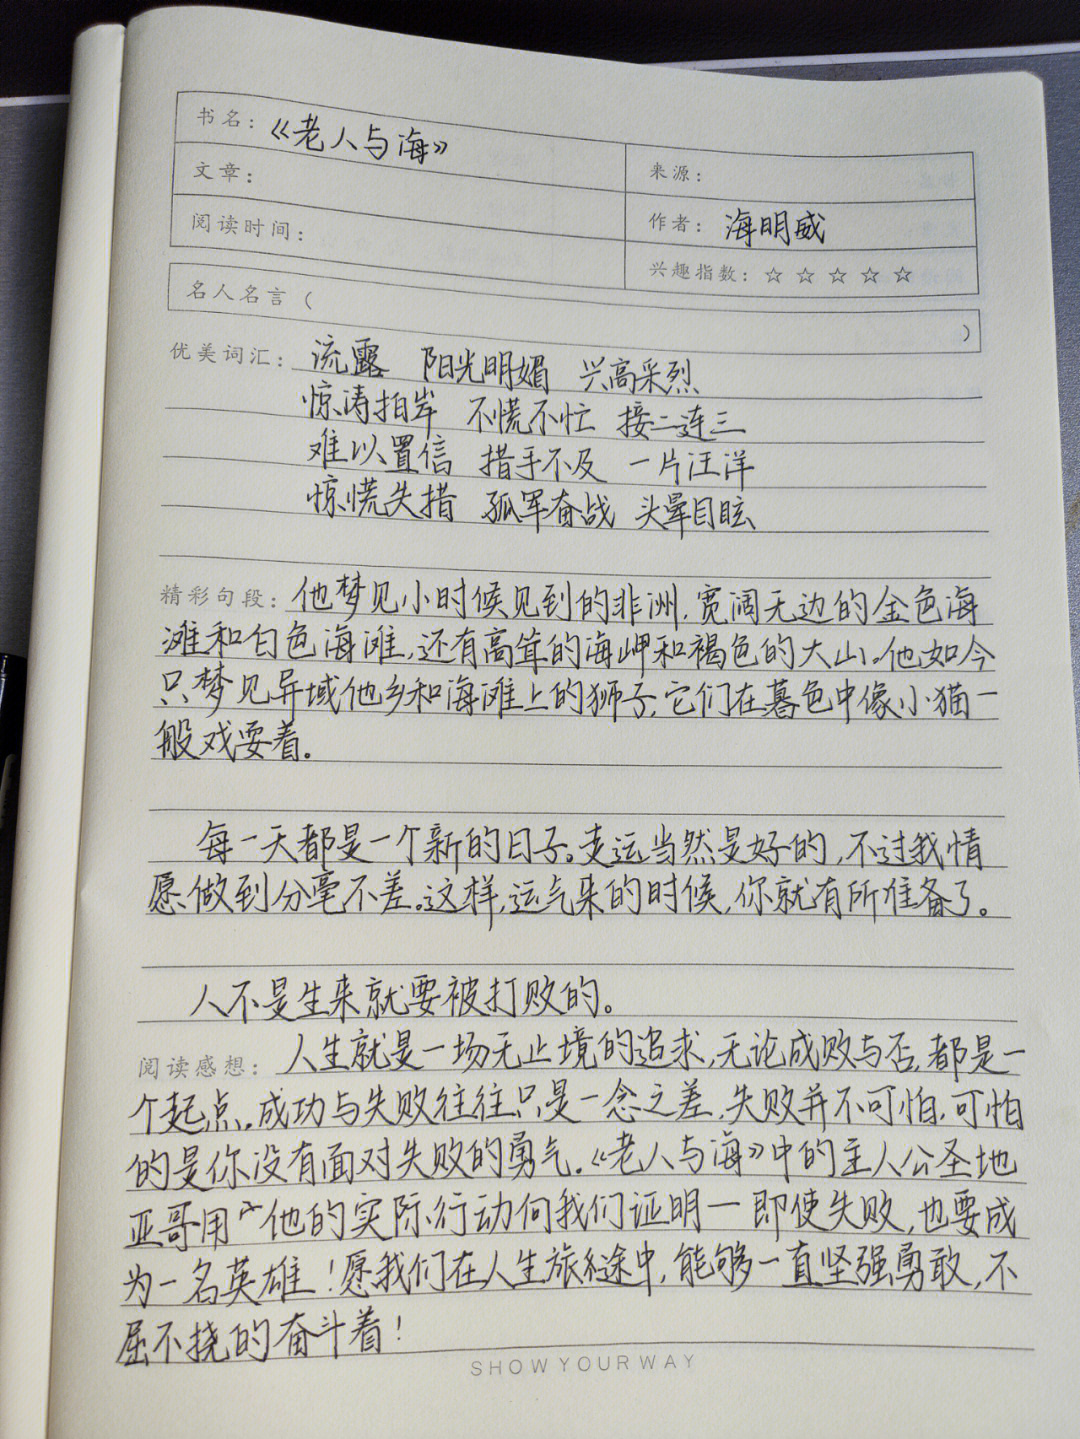 书名：《老人与海》
文章：
来源：
阅读时间：
作者：海明威
兴趣指数：☆ ☆ ☆ ☆ ☆
名人名言（ ）
优美词汇：流露 阳光明媚 兴高采烈
惊涛拍岸 不慌不忙 接二连三
难以置信 措手不及 一片汪洋
惊慌失措 孤军奋战 头晕目眩
精彩句段：他梦见小时候见到的非洲，宽阔无边的金色海
滩和白色海滩，还有高耸的海岬和褐色的大山。他如今
只梦见异域他乡和海滩上的狮子，它们在暮色中像小猫一
般戏耍着。
每一天都是一个新的日子。走运当然是好的，不过我情
愿做到分毫不差。这样，运气来的时候，你就有所准备了。
人不是生来就要被打败的。
阅读感想：人生就是一场无止境的追求，无论成败与否，都是一
个起点。成功与失败往往只是一念之差，失败并不可怕，可怕
的是你没有面对失败的勇气。《老人与海》中的主人公圣地
亚哥用他的实际行动向我们证明一即使失败，也要成
为一名英雄！愿我们在人生旅途中，能够一直坚强勇敢，不
屈不挠的奋斗着！
SHOW YOUR WAY